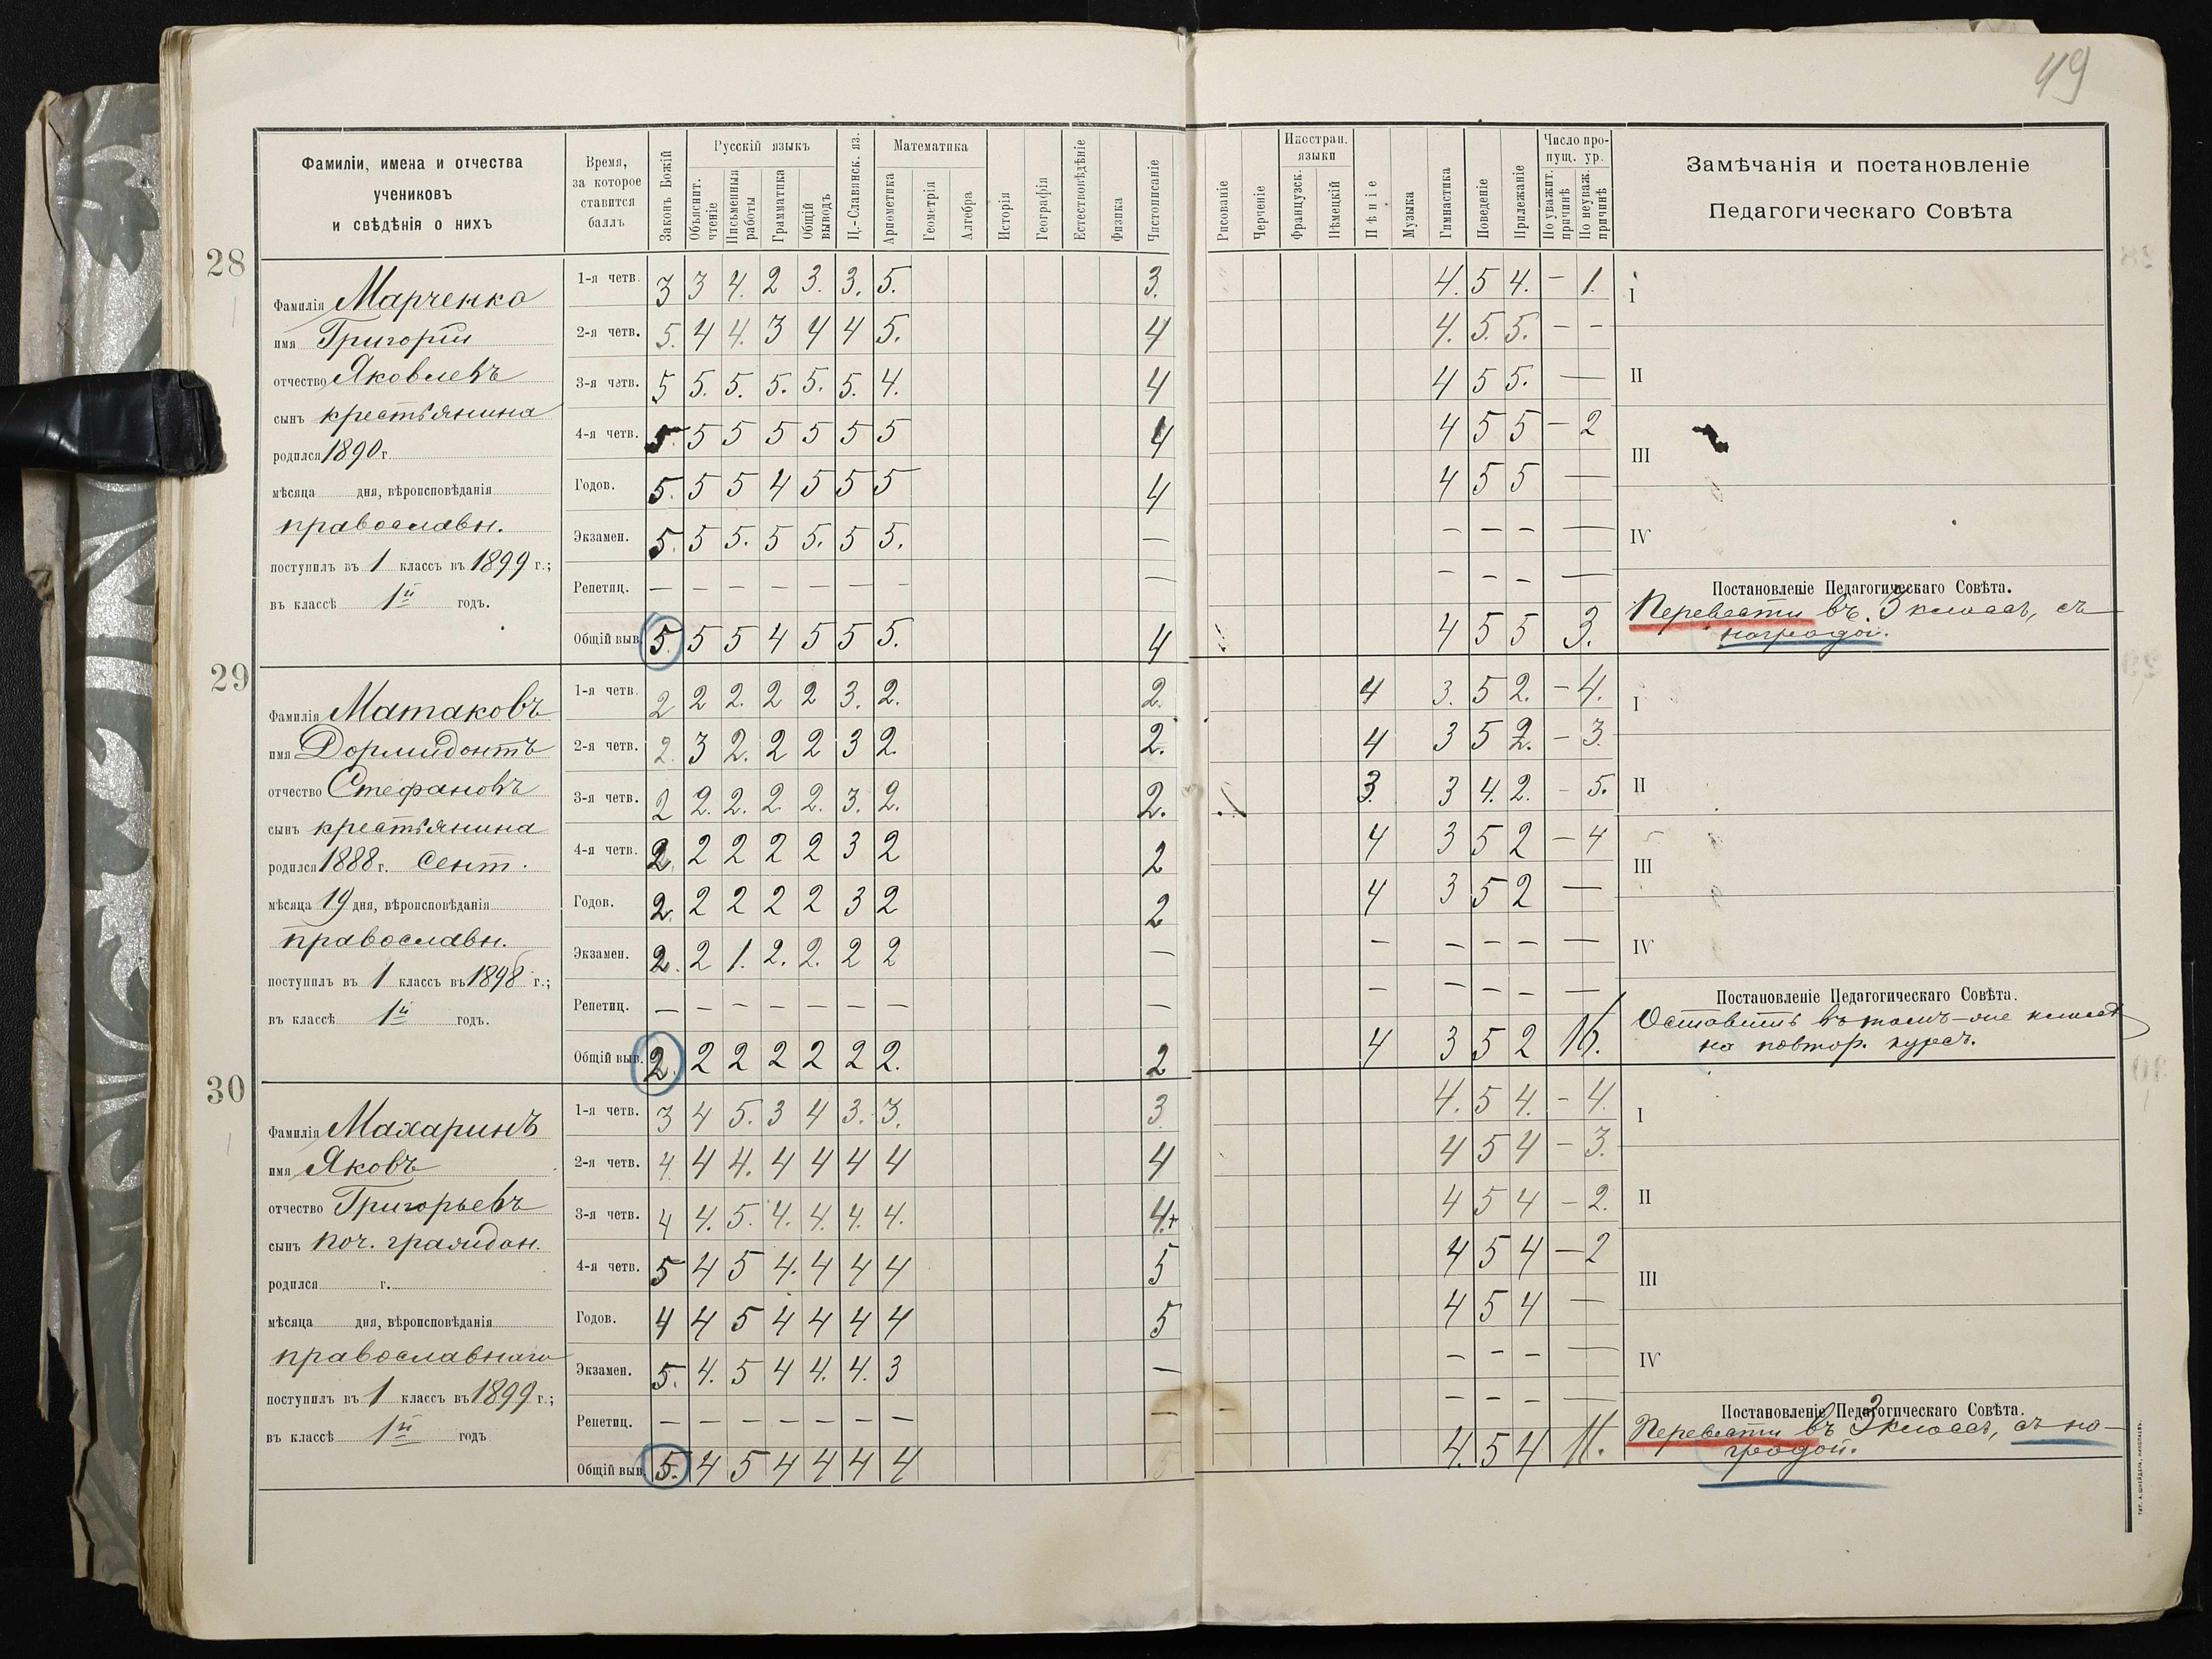 49
Фамиліи, имена и отчества
учениковъ
и свѣдѣнія о нихъ
Время,
за которое
ставится
баллъ
Законъ Божій
Русскій языкъ
Объяснит. чтеніе
Письменныя работы
Грамматика
Общій выводъ
Ц.-Славянск. яз.
Математика
Ариѳметика
Геометрія
Алгебра
Исторія
Географія
Естествовѣдѣніе
Физика
Чистописаніе
Рисованіе
Черченіе
Иностран. языки
Французск.
Нѣмецкій
Пѣніе
Музыка
Гимнастика
Поведеніе
Прилежаніе
Число про-
пущ. ур.
По уважит. причинѣ
По неуваж. причинѣ
Замѣчанія и постановленіе
Педагогическаго Совѣта
28
Фамилія Марченко
имя Григорій
отчество Яковлевъ
сынъ крестьянина
родился 1890 г.
мѣсяца дня, вѣроисповѣданія
православн.
поступилъ въ 1 классъ въ 1899 г.;
въ классѣ 1й годъ.
1-я четв. 3 3 4. 2 3. 3. 5. 3. 4. 5 4. – 1.
2-я четв. 5. 4 4. 3 4 4 5. 4 4. 5. 5. – –
3-я четв. 5 5. 5. 5. 5. 5. 4. 4 4 5 5. —
4-я четв. 5 5 5 5 5 5 5 4 4 5 5 – 2
Годов. 5. 5 5 4 5 5 5 4 4 5 5 —
Экзамен. 5. 5 5. 5 5. 5 5. — – – – —
Репетиц. – – – – – – – — – – – —
Общій выв. 5. 5 5 4 5 5 5. 4 4 5 5 3.
I
II
III
IV
Постановленіе Педагогическаго Совѣта.
Перевести въ 3 классъ, съ
наградой.
29
Фамилія Матаковъ
имя Дормидонтъ
отчество Стефановъ
сынъ крестьянина
родился 1888 г. Сент.
мѣсяца 19 дня, вѣроисповѣданія
православн.
поступилъ въ 1 классъ въ 1898 г.;
въ классѣ 1й годъ.
1-я четв. 2 2 2. 2 2 3. 2. 2. 4 3. 5 2. – 4.
2-я четв. 2. 3 2. 2 2 3 2. 2. 4 3 5 2. – 3.
3-я четв. 2 2. 2. 2. 2. 3. 2. 2. 3. 3 4. 2. – 5.
4-я четв. 2. 2 2 2 2 3 2 2 4 3 5 2 – 4
Годов. 2. 2 2 2 2 3 2 2 4 3 5 2 —
Экзамен. 2. 2 1. 2. 2. 2 2 — – – – – —
Репетиц. – – – – – – – — – – – – —
Общій выв. 2. 2 2 2 2 2 2. 2 4 3 5 2 16.
I
II
III
IV
Постановленіе Педагогическаго Совѣта.
Оставить въ томъ-же классѣ
на повтор. курсъ.
30
Фамилія Махаринъ
имя Яковъ
отчество Григорьевъ
сынъ поч. граждан.
родился г.
мѣсяца дня, вѣроисповѣданія
православнаго
поступилъ въ 1 классъ въ 1899 г.;
въ классѣ 1й годъ
1-я четв. 3 4 5. 3 4 3. 3. 3 4. 5 4. – 4.
2-я четв. 4. 4 4. 4 4 4 4 4 4 5 4 – 3.
3-я четв. 4 4. 5. 4. 4. 4. 4. 4.+ 4 5 4 – 2.
4-я четв. 5 4 5 4. 4 4 4 5 4 5 4 – 2
Годов. 4 4 5 4 4 4 4 5 4 5 4 —
Экзамен. 5. 4. 5 4 4. 4. 3 — – – – —
Репетиц. – – – – – – – — – – – —
Общій выв. 5. 4 5 4 4 4 4 5 4. 5 4 11.
I
II
III
IV
Постановленіе Педагогическаго Совѣта.
Перевести въ 3 классъ, съ на-
градой.